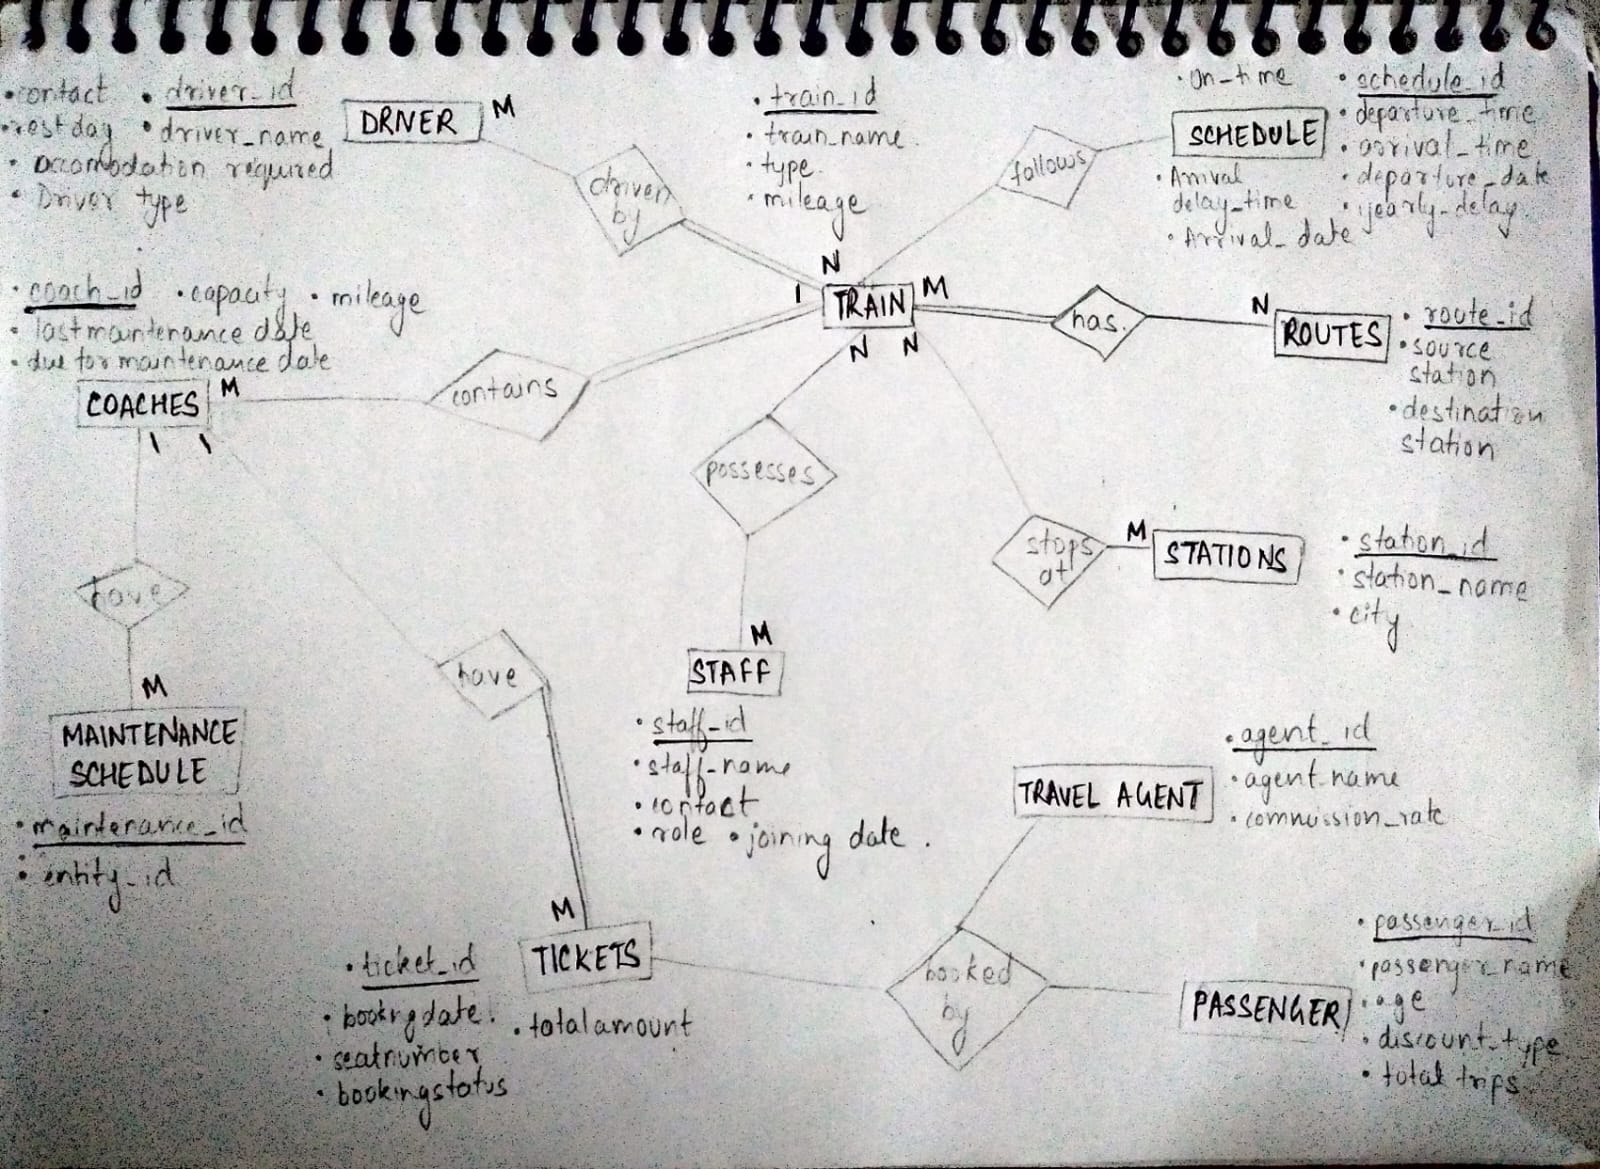 • contact • driver_id
• rest day • driver_name
• accomodation required
• Driver type
DRIVER M
driven by
• train_id
• train_name.
• type.
• mileage
follows
SCHEDULE
• on-time • schedule_id
• departure_time
• arrival_time
• Arrival • departure_date
delay_time • yearly_delay
• Arrival_date
N
1 TRAIN M
N N
has.
N
ROUTES
• route_id
• source
station
• destination
station
• coach_id • capacity • mileage
• last maintenance date
• due for maintenance date
COACHES M
1 1
contains
possesses
stops
at
M STATIONS
• station_id
• station_name
• city
have
M
MAINTENANCE
SCHEDULE
• maintenance_id
• entity_id
have
M
STAFF
• staff_id
• staff-name
• contact
• role • joining date .
TRAVEL AGENT
• agent_id
• agent name
• commission_rate
M
TICKETS
• ticket_id
• bookngdate.
• totalamount
• seatnumber
• bookingstatus
booked
by
PASSENGER
• passenger_id
• passenger_name
• age
• discount_type
• total trips.